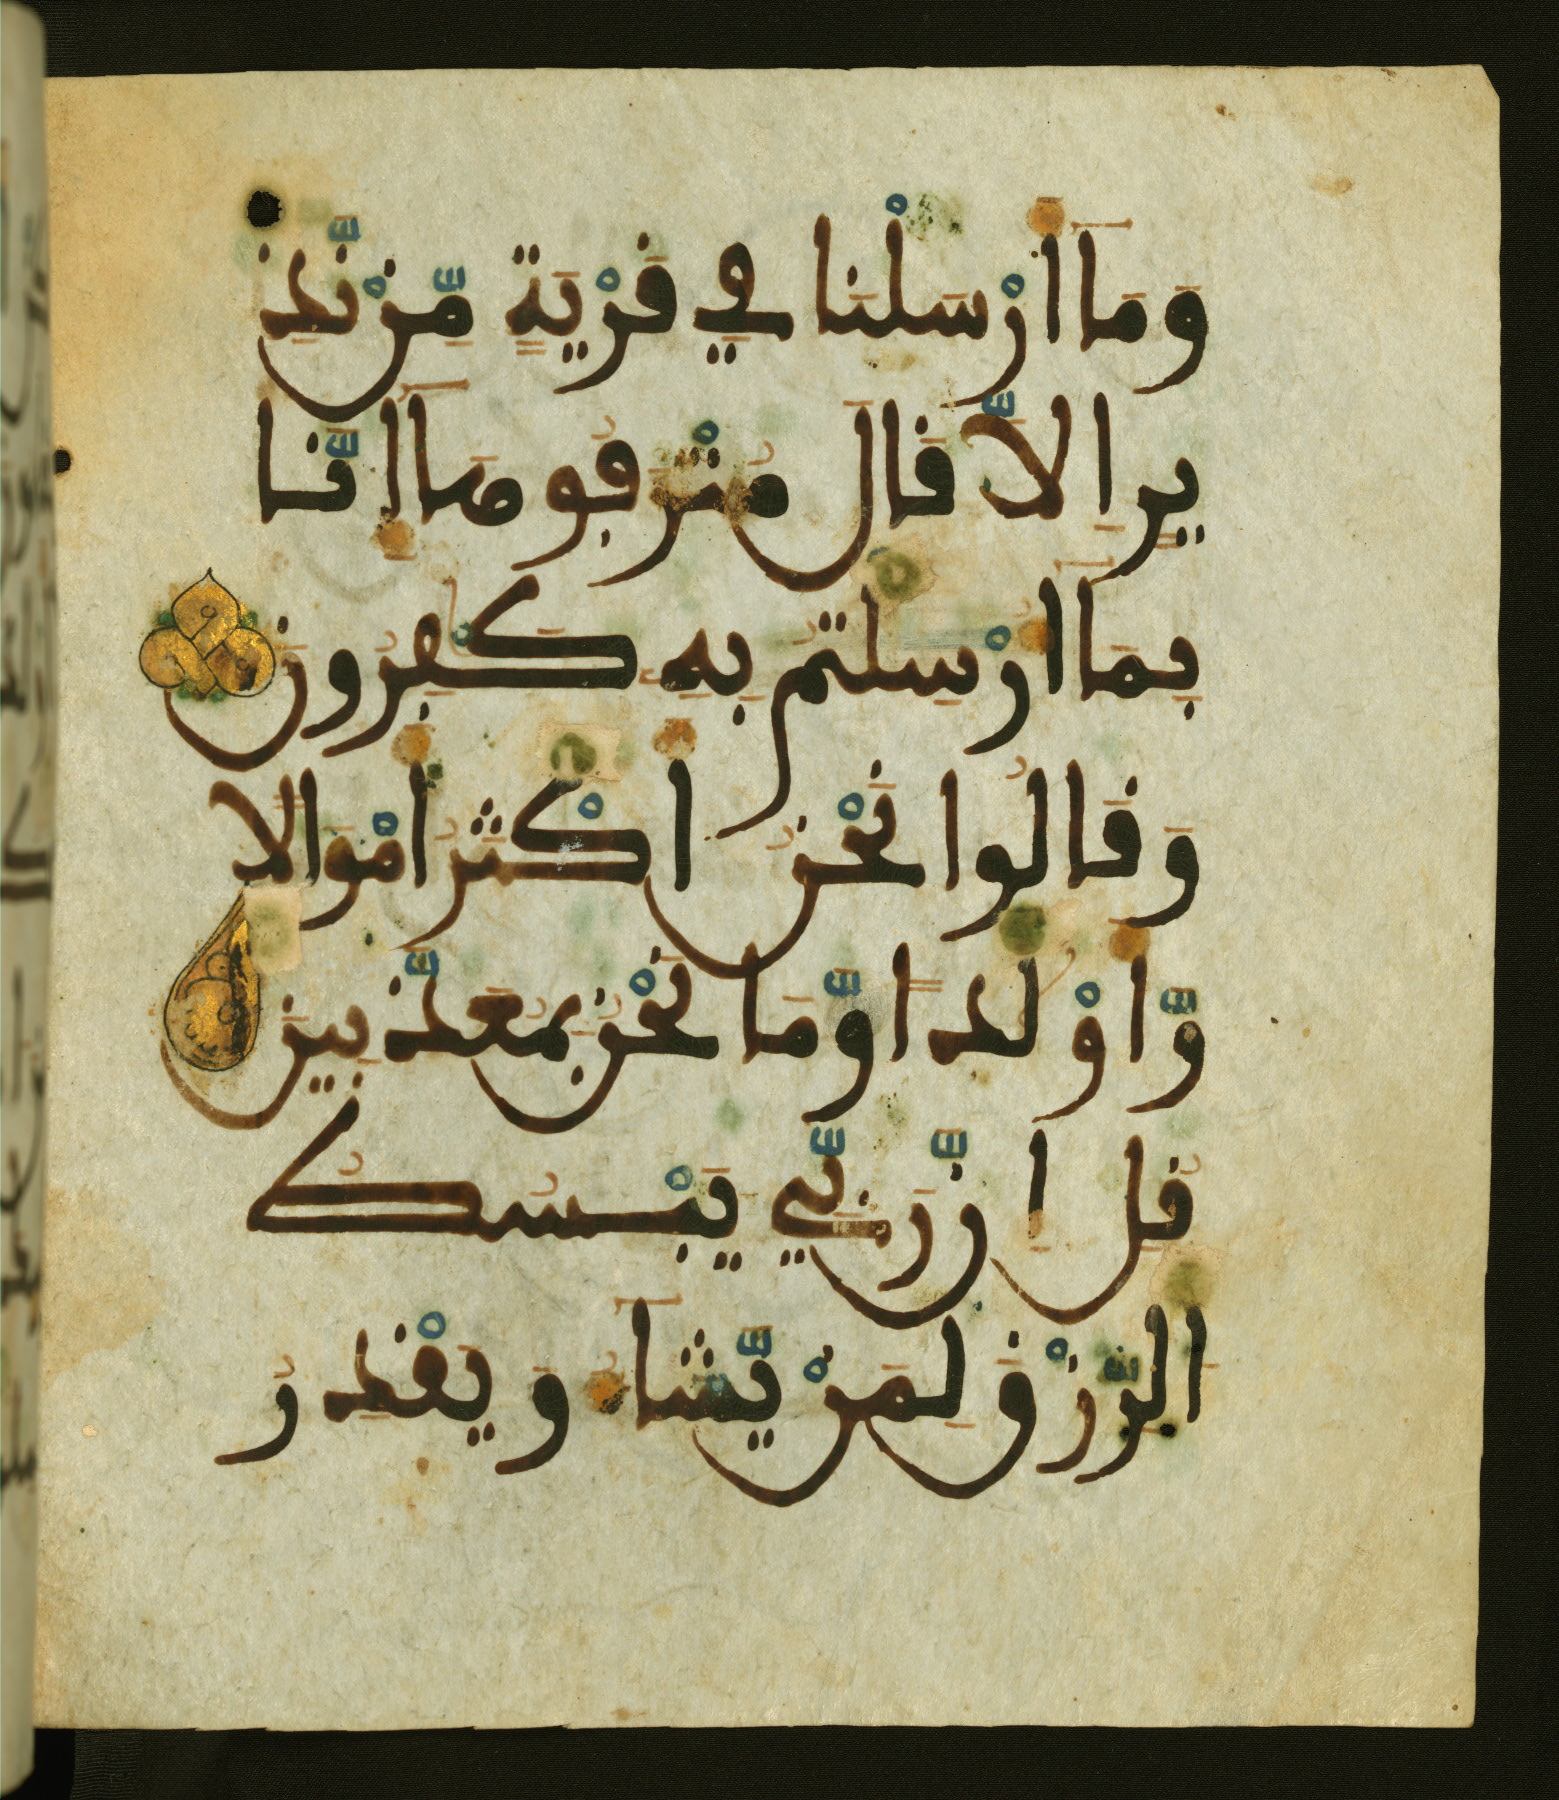 وَمَا أَرْسَلْنَا فِي قَرْيَةٍ مِّن نَّذِ
يرٍ اِلَّا قَالَ مُتْرَفُوهَا إِنَّا
بِمَا أُرْسِلْتُم بِهِ كَٰفِرُونَ
وَقَالُوا نَحْنُ أَكْثَرُ أَمْوَالًا
وَّأَوْلَدًا وَّمَا نَحْنُ بِمُعَذَّبِينَ
قُلْ إِنَّ رَبِّي يَبْسُطُ
الرِّزْقَ لِمَنْ يَّشَآءُ وَيَقْدِرُ